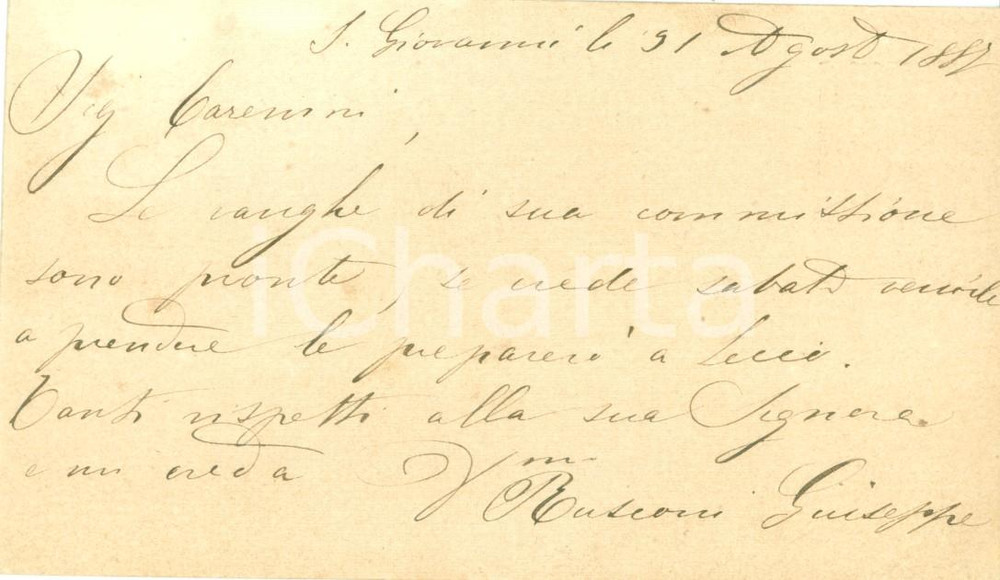 S. Giovanni li 31 Agosto 1887
Sig Caremini,
Le vanghe di sua commissione
sono pronte, se crede sabato venirle
a prendere le preparerò a Lecco.
Tanti rispetti alla sua Signora
e mi creda
Rusconi Giuseppe
iCharta